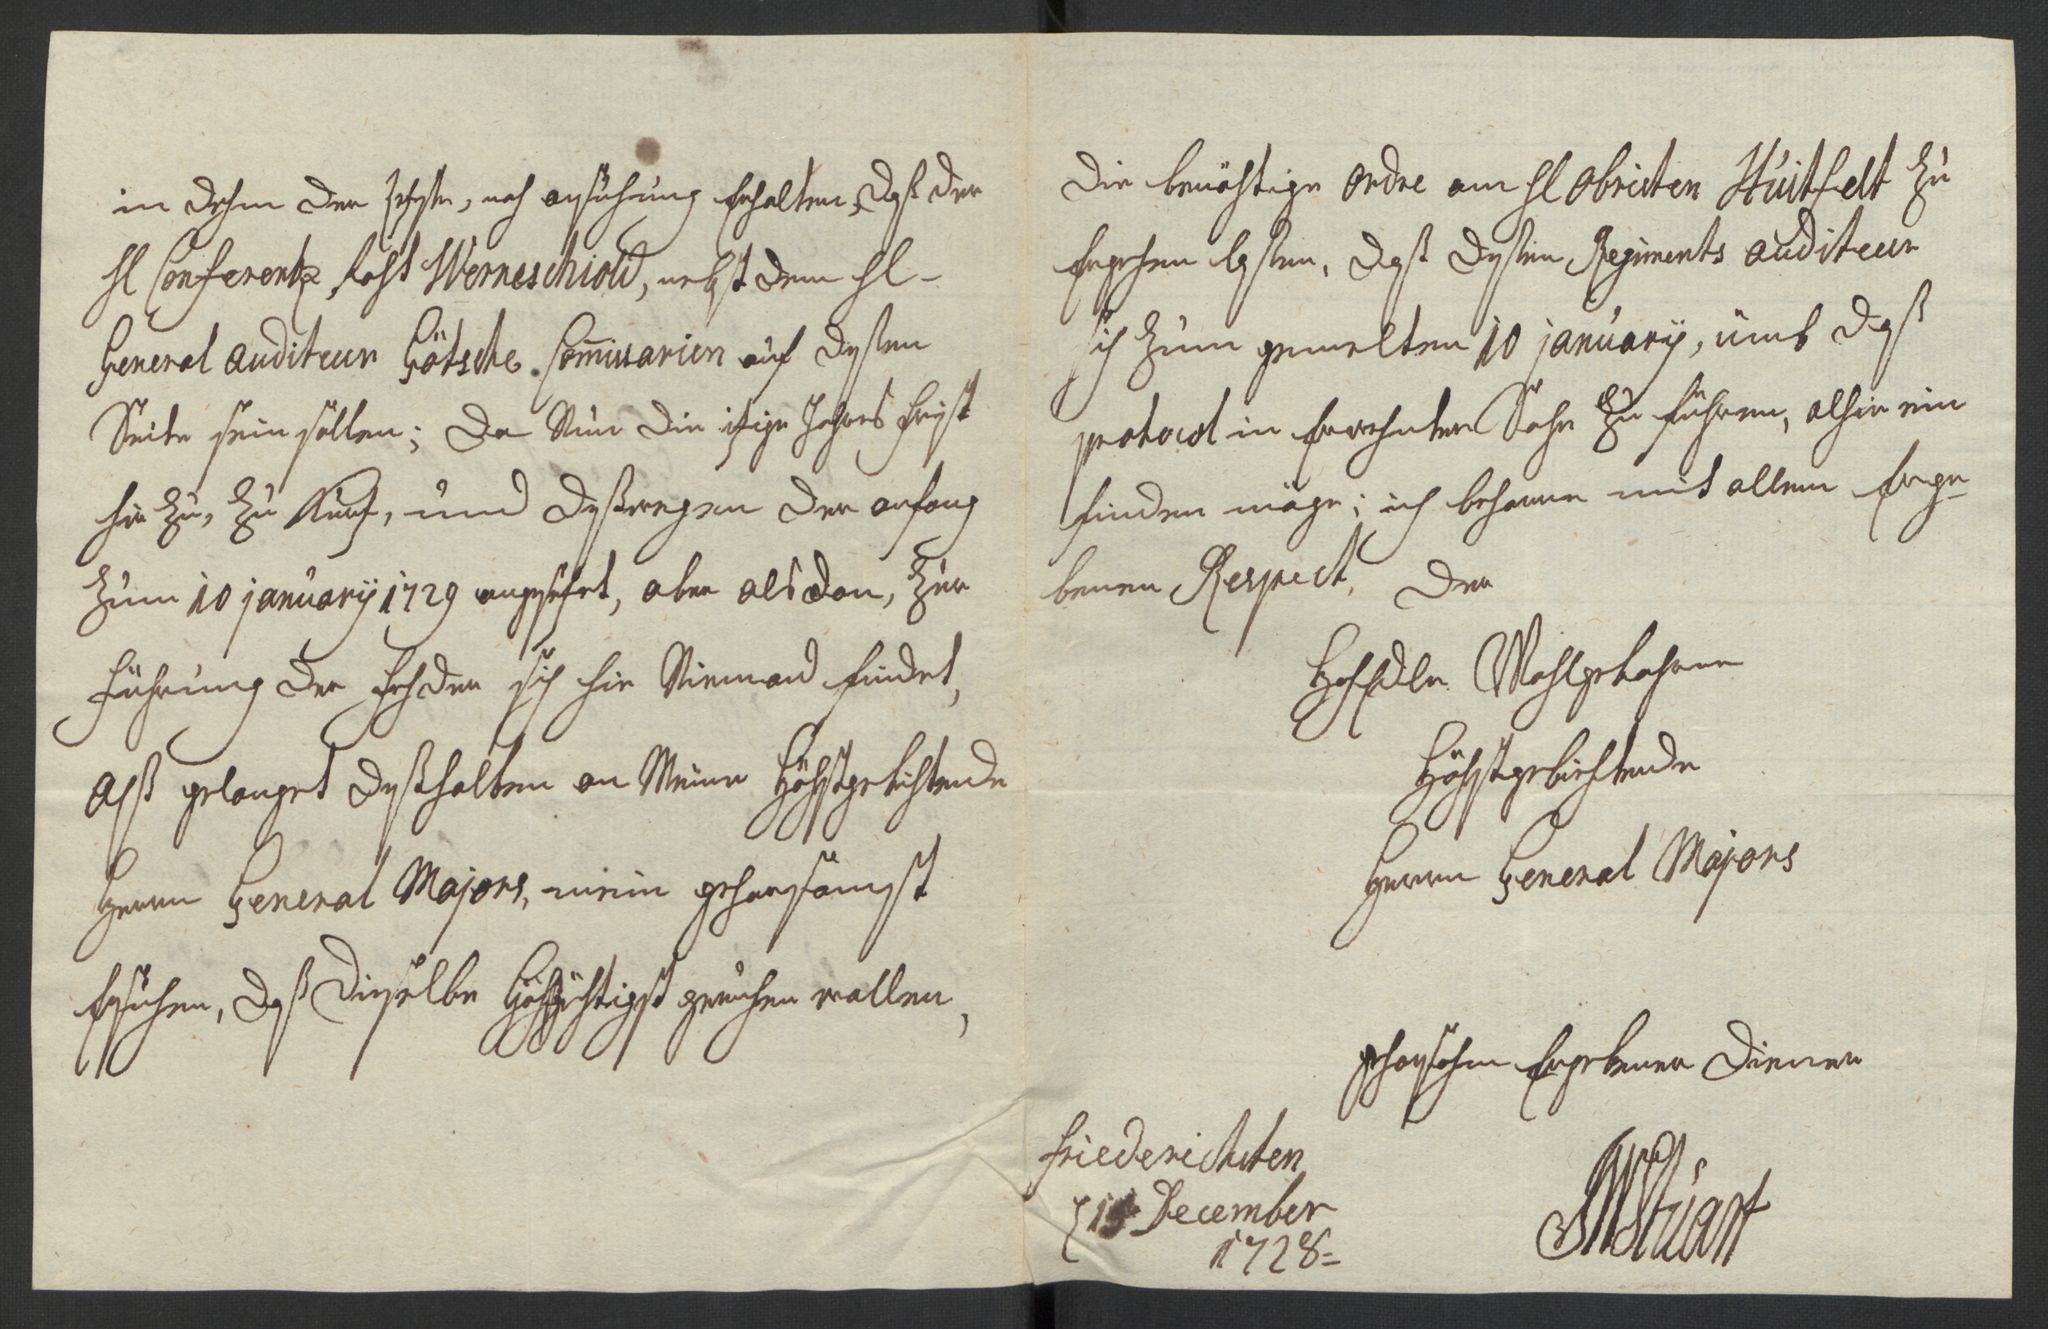 in dehm der letzte, noch ansuchung Erhalten, daß der
H. Conferentz Raht Werneschiold, nebst dem H.
General auditeur Götsche Commissarien auf dessen
Seite sein sollen; Da Nun die itzige Jahres frist
hie zu, zu Kurtz, und deßwegen der anfang
zum 10 january 1729 angesetzt, aber alsdan, zur
Führung der feder sich hie Niemand findet,
Alß gelanget deßhalben an Meine Höchstgebiehtende
Herrn General Majors, mein gehorsamst
Ersuchen, daß Dieselbe Hochgühtigst geruhen wollen,
die benöhtige ordre am H. obristen Huitfelt zu
Ergehen lassen, daß dessen Regiments auditeur
sich zum gemelten 10 january, umb daß
protocol in Erwehnter Sache zu führen, alhie ein
finden möge; ich beharre mit allem Erge-
benen Respect, Der
HochEdle Wohlgebohrne
Höchstgebiehtende
Herrn General Majors
gehorsahm Ergebener Diener
Friederichsten
December
1728
Stuart